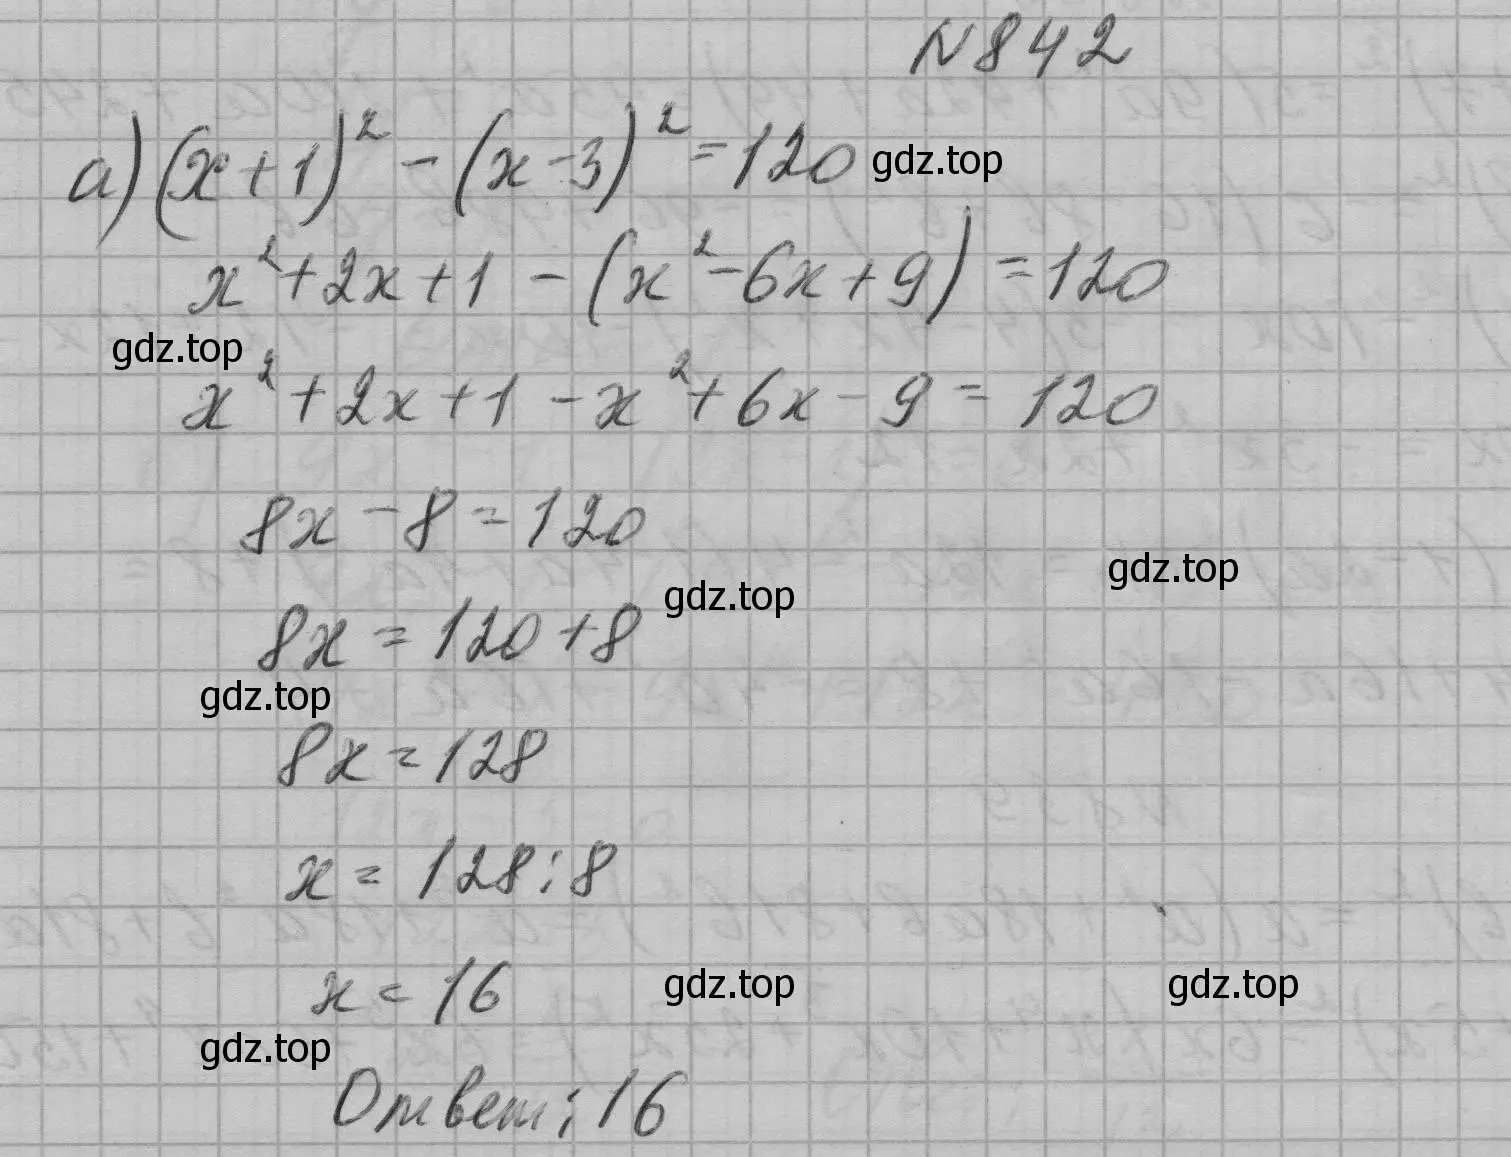 N 842
а) (x+1)² - (x-3)² = 120 gdz.top
x² + 2x + 1 - (x² - 6x + 9) = 120
gdz.top
x² + 2x + 1 - x² + 6x - 9 = 120
8x - 8 = 120
gdz.top
gdz.top
8x = 120 + 8
gdz.top
8x = 128
x = 128 : 8
x = 16
gdz.top gdz.top
gdz.top
Ответ: 16